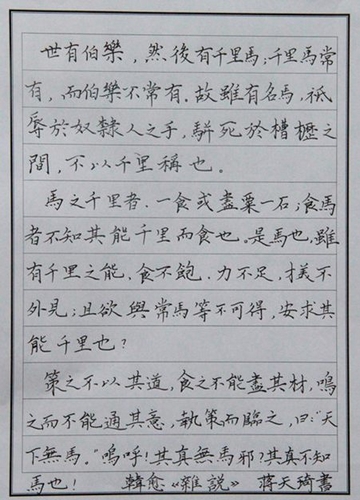 世有伯樂，然後有千里馬；千里馬常
有，而伯樂不常有。故雖有名馬，祇
辱於奴隸人之手，駢死於槽櫪之
間，不以千里稱也。
馬之千里者，一食或盡粟一石；食馬
者不知其能千里而食也。是馬也，雖
有千里之能，食不飽，力不足，才美不
外見；且欲與常馬等不可得，安求其
能千里也？
策之不以其道，食之不能盡其材，鳴
之而不能通其意，執策而臨之，曰：“天
下無馬。”嗚呼！其真無馬邪？其真不知
馬也！ 韓愈《雜說》 蔣天琦書